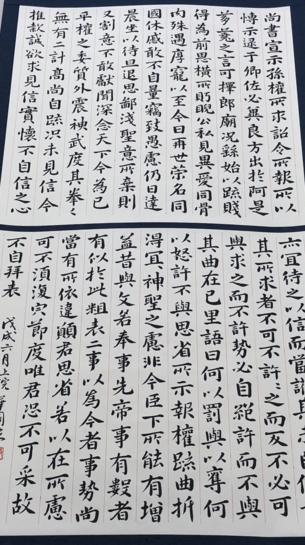 尚書宣示孫權所求詔令所報所以
博示逮于卿佐必冀良方出於阿是
芻蕘之言可擇郎廟況繇始以疏賤
得為前恩橫所盼睨公私見異愛同骨
肉殊遇厚寵以至今日再世榮名同
國休慼敢不自量竊致愚慮仍日達
晨坐以待旦退思鄙淺聖意所棄則
又割意不敢獻聞深念天下今為已
平權之委質外震神武度其拳々
無有二計高尚自疏況未見信今
推款誠欲求見信實懷不自信之心
亦宜待之以信而當護其
其所求者不可不許許之而反不必可
與求之而不許勢必自絕許而不與
其曲在己里語曰何以罰與以奪何
以怒許不與思省所示報權疏曲折
得宜神聖之慮非今臣下所能有增
益昔與文若奉事先帝事有數者
有似於此粗表二事以為今者事勢尚
當有所依違願君思省若以在所慮
可不須復皃節度唯君恐不可采故
不自拜表
戊戌六月上浣